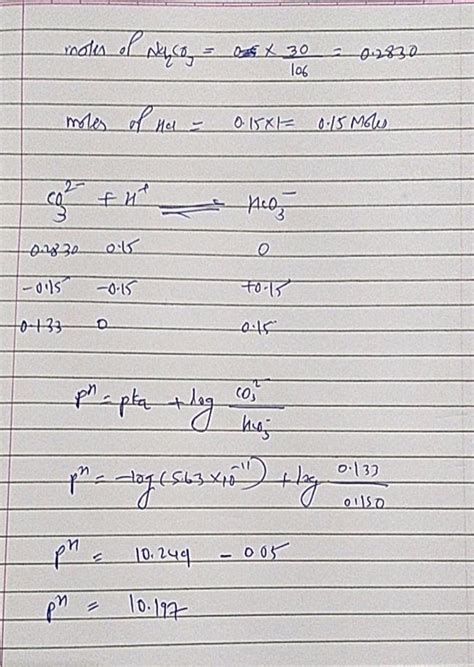 moles of Na2CO3 = × 30/106 = 0.2830
moles of HCl = 0.15×1= 0.15 Moles
CO3^2- + H^+ ⇌ HCO3^-
0.2830 0.15 0
-0.15 -0.15 +0.15
0.133 0 0.15
pH = pka + log CO3^2-/HCO3^-
pH = -log(5.63×10^-11) + log 0.133/0.150
pH = 10.249 - 0.05
pH = 10.197